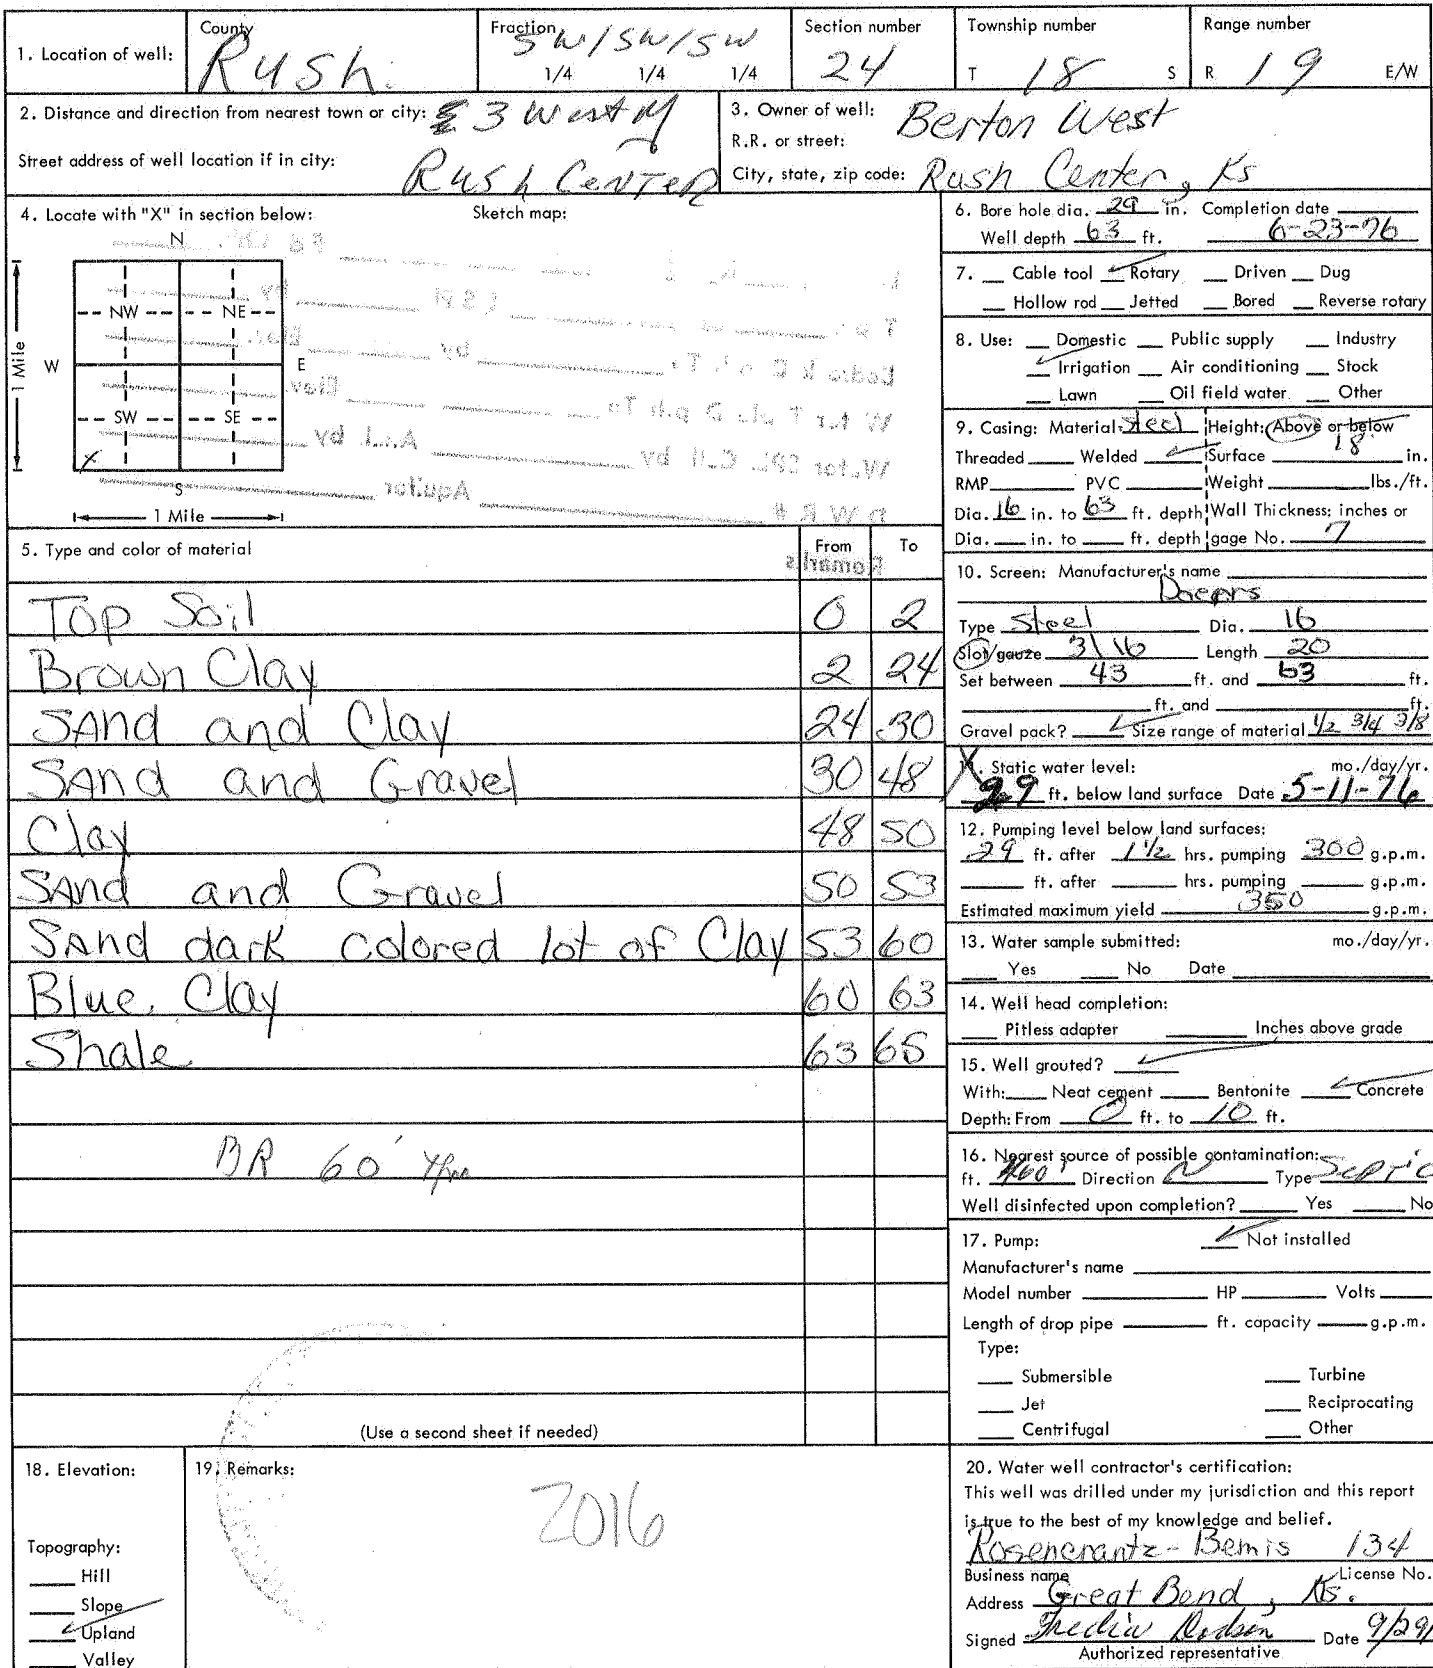 1. Location of well: County Rush Fraction SW/SW/SW 1/4 1/4 1/4 Section number 24 Township number T 18 S Range number R 19 E/W
2. Distance and direction from nearest town or city: 3 West of
Street address of well location if in city: Rush Center
3. Owner of well: Berton West
R.R. or street:
City, state, zip code: Rush Center, Ks
4. Locate with "X" in section below: Sketch map:
N
NW NE
W E
1 Mile
SW SE
X
S
1 Mile
5. Type and color of material From To
Top Soil 0 2
Brown Clay 2 24
SAnd and Clay 24 30
SAnd and Gravel 30 48
Clay 48 50
SAnd and Gravel 50 53
SAnd dark colored lot of Clay 53 60
Blue Clay 60 63
Shale 63 65
BR 60'
(Use a second sheet if needed)
6. Bore hole dia. 29 in. Completion date
Well depth 63 ft. 6-23-76
7. Cable tool ✓ Rotary Driven Dug
Hollow rod Jetted Bored Reverse rotary
8. Use: Domestic Public supply Industry
✓ Irrigation Air conditioning Stock
Lawn Oil field water Other
9. Casing: Material: Steel Height: Above or below
Threaded Welded ✓ Surface 18 in.
RMP PVC Weight lbs./ft.
Dia. 16 in. to 63 ft. depth Wall Thickness: inches or
Dia. in. to ft. depth gage No. 7
10. Screen: Manufacturer's name
Type Steel Dia. 16
Slot/gauze 3\16 Length 20
Set between 43 ft. and 63 ft.
ft. and ft.
Gravel pack? ✓ Size range of material 1/2 3/4 3/8
11. Static water level: mo./day/yr.
29 ft. below land surface Date 5-11-76
12. Pumping level below land surfaces:
29 ft. after 1 1/2 hrs. pumping 300 g.p.m.
ft. after hrs. pumping g.p.m.
Estimated maximum yield 350 g.p.m.
13. Water sample submitted: mo./day/yr.
Yes No Date
14. Well head completion:
Pitless adapter Inches above grade
15. Well grouted? ✓
With: Neat cement Bentonite ✓ Concrete
Depth: From 0 ft. to 10 ft.
16. Nearest source of possible contamination:
ft. Direction N Type Septic
Well disinfected upon completion? Yes No
17. Pump: ✓ Not installed
Manufacturer's name
Model number HP Volts
Length of drop pipe ft. capacity g.p.m.
Type:
Submersible Turbine
Jet Reciprocating
Centrifugal Other
18. Elevation:
Topography:
Hill
Slope
✓ Upland
Valley
19. Remarks:
2016
20. Water well contractor's certification:
This well was drilled under my jurisdiction and this report
is true to the best of my knowledge and belief.
Rosencrantz-Bemis 134
Business name License No.
Address Great Bend, Ks.
Signed Date 9/29/
Authorized representative